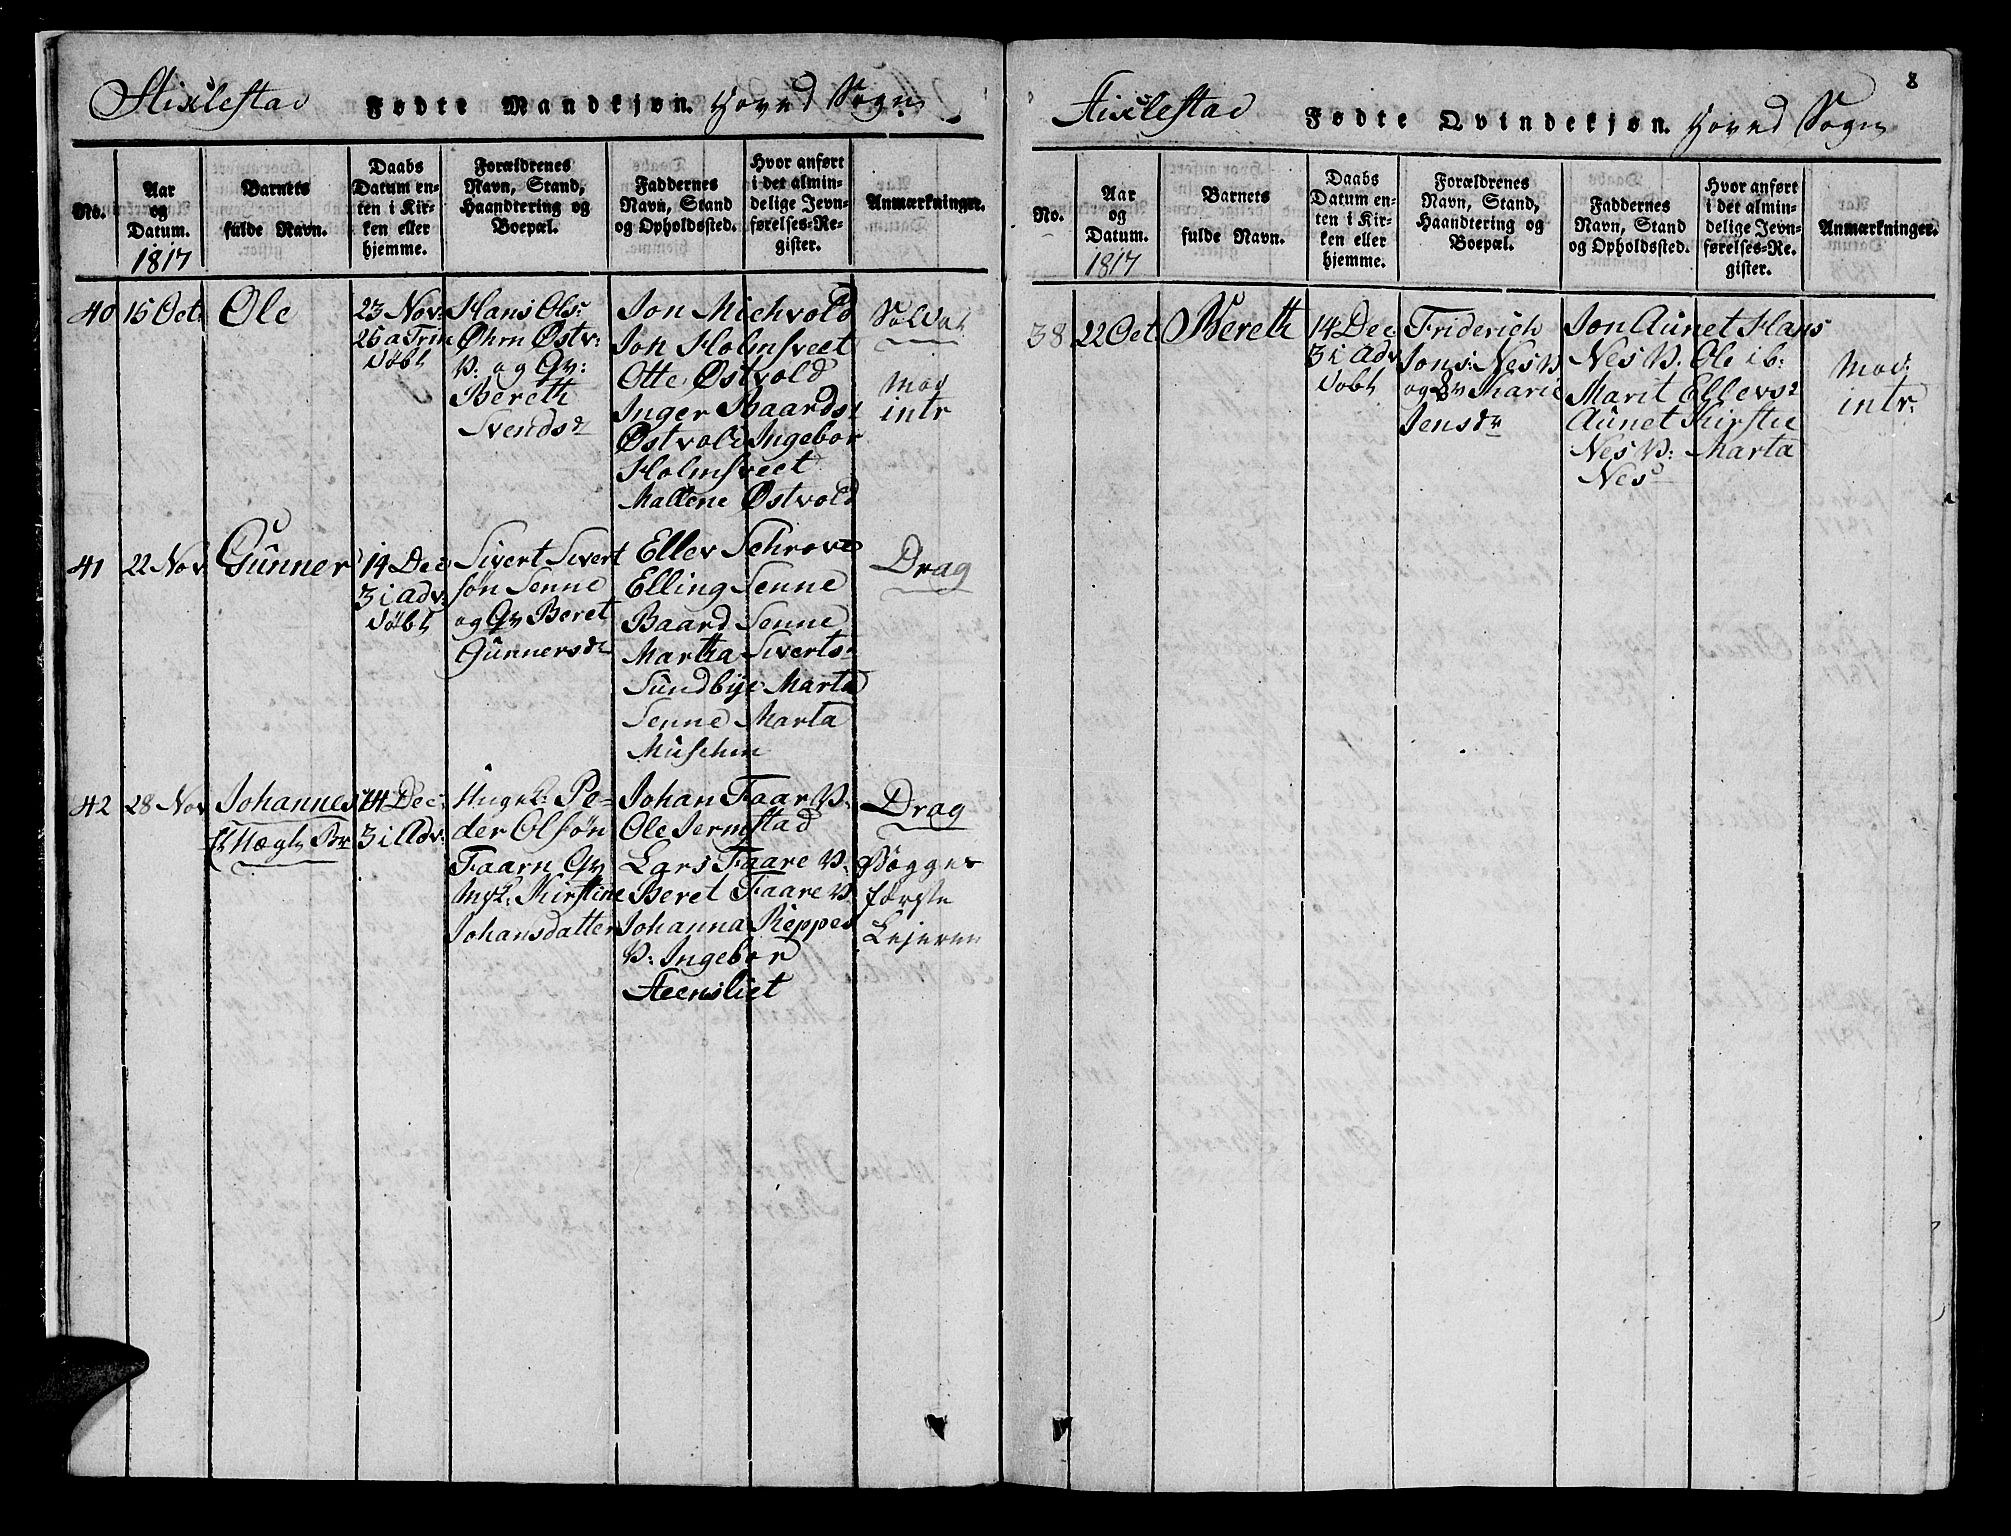 Stixlestad Fødte Mandkjøn. Hoved Sogn
No.
Aar og Datum. 1817
Barnets fulde Navn.
Daabs Datum enten i Kirken eller hjemme.
Forældrenes Navn, Stand, Haandtering og Boepæl.
Faddernes Navn, Stand og Opholdssted.
Hvor anført i det almindelige Jevnførelses-Register.
Anmærkninger.
40 15 Oct. Ole
23 Nov:
26 a Trin
døbt
Hans Ols:
Øhrn Østv:
V: og Qv:
Bereth
Svendsd
Jon Michvold
Jon Holmsveet
Otte Østvold
Inger Baards
Østvold Ingebor
Holmsveet
Mallene Østvold
Soldat
mod
intr
41 22 Nov. Gunner
14 Dec
3 i Adv:
døbt
Sivert Sivert
søn Senne
og Qv Beret
Gunnersdr
Ellev Schrove
Elling Senne
Baard Senne
Martha Siverts
Sundbye Marta
Senne Marta
Muschen
Drag
42 28 Nov Johannes
14 Dec:
3 i Adv:
Ungek: Pe-
der Olsøn
Faarn Qv
Kirstine
Johansdatter
Johan Faar V:
Ole Jermstad
Lars Faare V:
Beret Faare V:
Johanna Reppes
V: Ingebor
Steensliet
Drag
Bogges
første
Lejeren
8
Stixlestad Fødte Qvindekjøn. Hoved Sogn
No.
Aar og Datum. 1817
Barnets fulde Navn.
Daabs Datum enten i Kirken eller hjemme.
Forældrenes Navn, Stand, Haandtering og Boepæl.
Faddernes Navn, Stand og Opholdssted.
Hvor anført i det almindelige Jevnførelses-Register.
Anmærkninger.
38 22 Oct. Bereth
14 Dec
3 i Adv.
døbt
Friderich
Jons: Nes V
og Qv Marie
Jensdr
Jon Aunet Hans
Nes V: Ole ib:
Marit Ellevs
Aunet Kirstie
Nes V: Marta
Nes
mod:
intr: